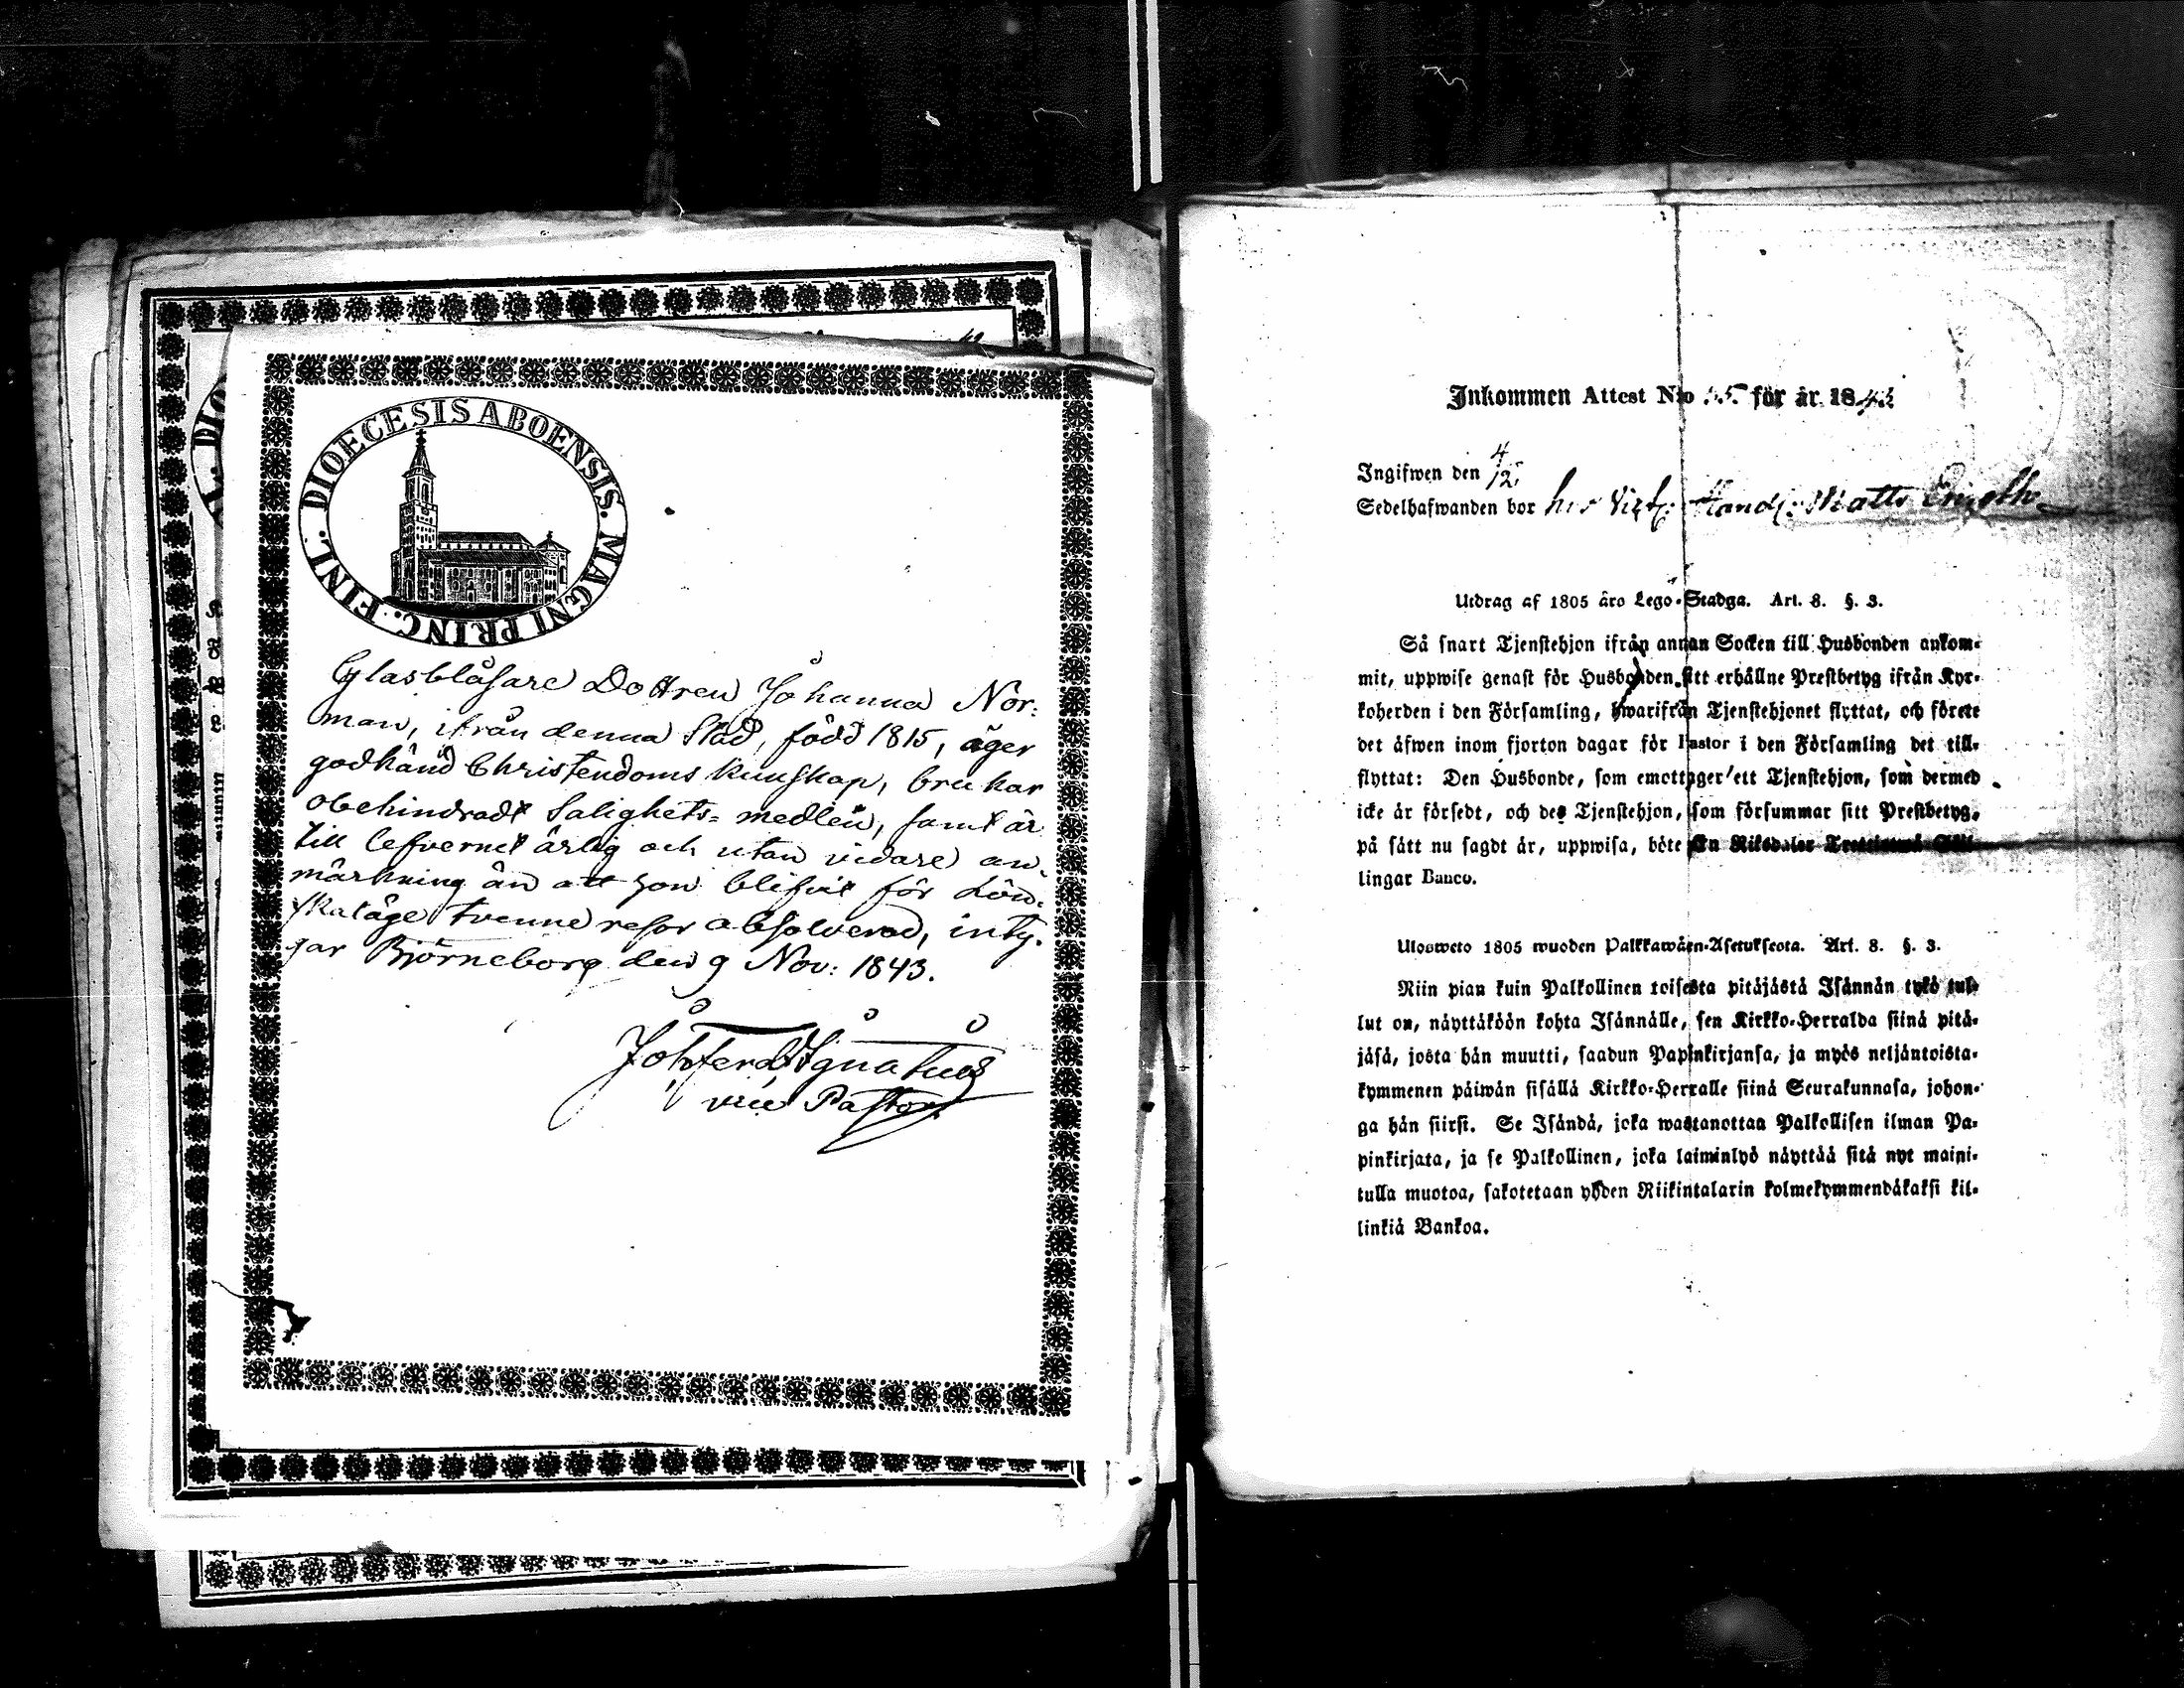 DIOECESIS ABOENSIS. MAGNI PRINC. FINL.
Glasblåsare Dottren Johanna Nor:
man, ifrån denna Stad, född 1815, äger
godkänd Christendoms kunskap, brukar
obehindradt Salighets= medlen, samt är
till lefvernet ärlig och utan vidare an-
märkning än att hon blifvit för Lön-
skaläge tvenne resor absolverad, inty-
gar Björneborg den 9 Nov: 1843.
Joh. Ferd. Ignatius
vice Pastor
Inkommen Attest N:o 55 för år 1843
Ingifwen den 4/12
Sedelhafwanden bor hos Handl: Matts
Utdrag af 1805 års Lego-Stadga. Art. 8. §. 3.
Så snart Tjenstehjon ifrån annan Socken till Husbonden ankom-
mit, uppwise genast för Husbonden sitt erhållne Prestbetyg ifrån Kyr-
koherden i den Församling, hwarifrån Tjenstehjonet flyttat, och förete
det äfwen inom fjorton dagar för Pastor i den Församling det till-
flyttat: Den Husbonde, som emottager ett Tjenstehjon, som dermed
icke är försedt, och det Tjenstehjon, som försummar sitt Prestbetyg,
på sätt nu sagdt är, uppwisa, böte En Riksdaler Trettiotwå Skil-
lingar Banco.
Ulosweto 1805 wuoden Palkkawäen-Asetuksesta. Art. 8. §. 3.
Niin pian kuin Palkollinen toisesta pitäjästä Isännän tykö tul-
lut on, näyttäköön kohta Isännälle, sen Kirkko-Herralda siinä pitä-
jäsä, josta hän muutti, saadun Papinkirjansa, ja myös neljäntoista-
kymmenen päiwän sisällä Kirkko-Herralle siinä Seurakunnasa, johon-
ga hän siirsi. Se Isändä, joka wastanottaa Palkollisen ilman Pa-
pinkirjata, ja se Palkollinen, joka laiminlyö näyttää sitä nyt maini-
tulla muotoa, sakotetaan yhden Riikintalarin kolmekymmendäkaksi kil-
linkiä Bankoa.